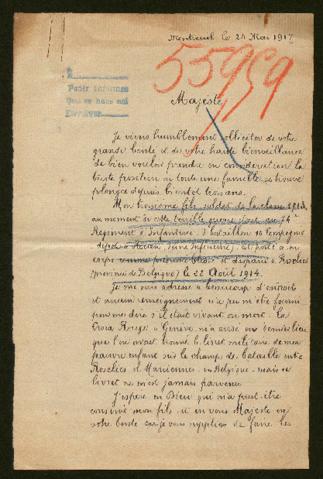 Montreuil le 21 Mai 1917
55959
Majesté,
Je viens humblement solliciter de votre
grande bonté et de votre haute bienveillance
de bien vouloir prendre en considération la
triste position où toute une famille se trouve
plongée depuis bientôt trois ans.
Mon fils soldat de la classe
au moment où cette terrible guerre 74e
Régiment d'Infanterie, 3 bataillon 10 Compagnie
dépôt à Rouen, Seine Inférieure, est porté à son
corps comme blessé et disparu à Roselies
(province de Belgique) le 22 Août 1914.
Je me suis adressé à beaucoup d'endroits
et aucun renseignement n'a pu m'être fourni
pour me dire s'il était vivant ou mort. la
Croix Rouge à Genève m'a avisé en dernier lieu
que l'on avait trouvé le livret militaire de mon
pauvre enfant sur le champs de bataille entre
Roselies et en Belgique mais ce
livret ne m'est jamais parvenu.
J'espère en Dieu qui m'a peut-être
conservé mon fils et en vous Majesté en
votre bonté car je vous supplie de faire les